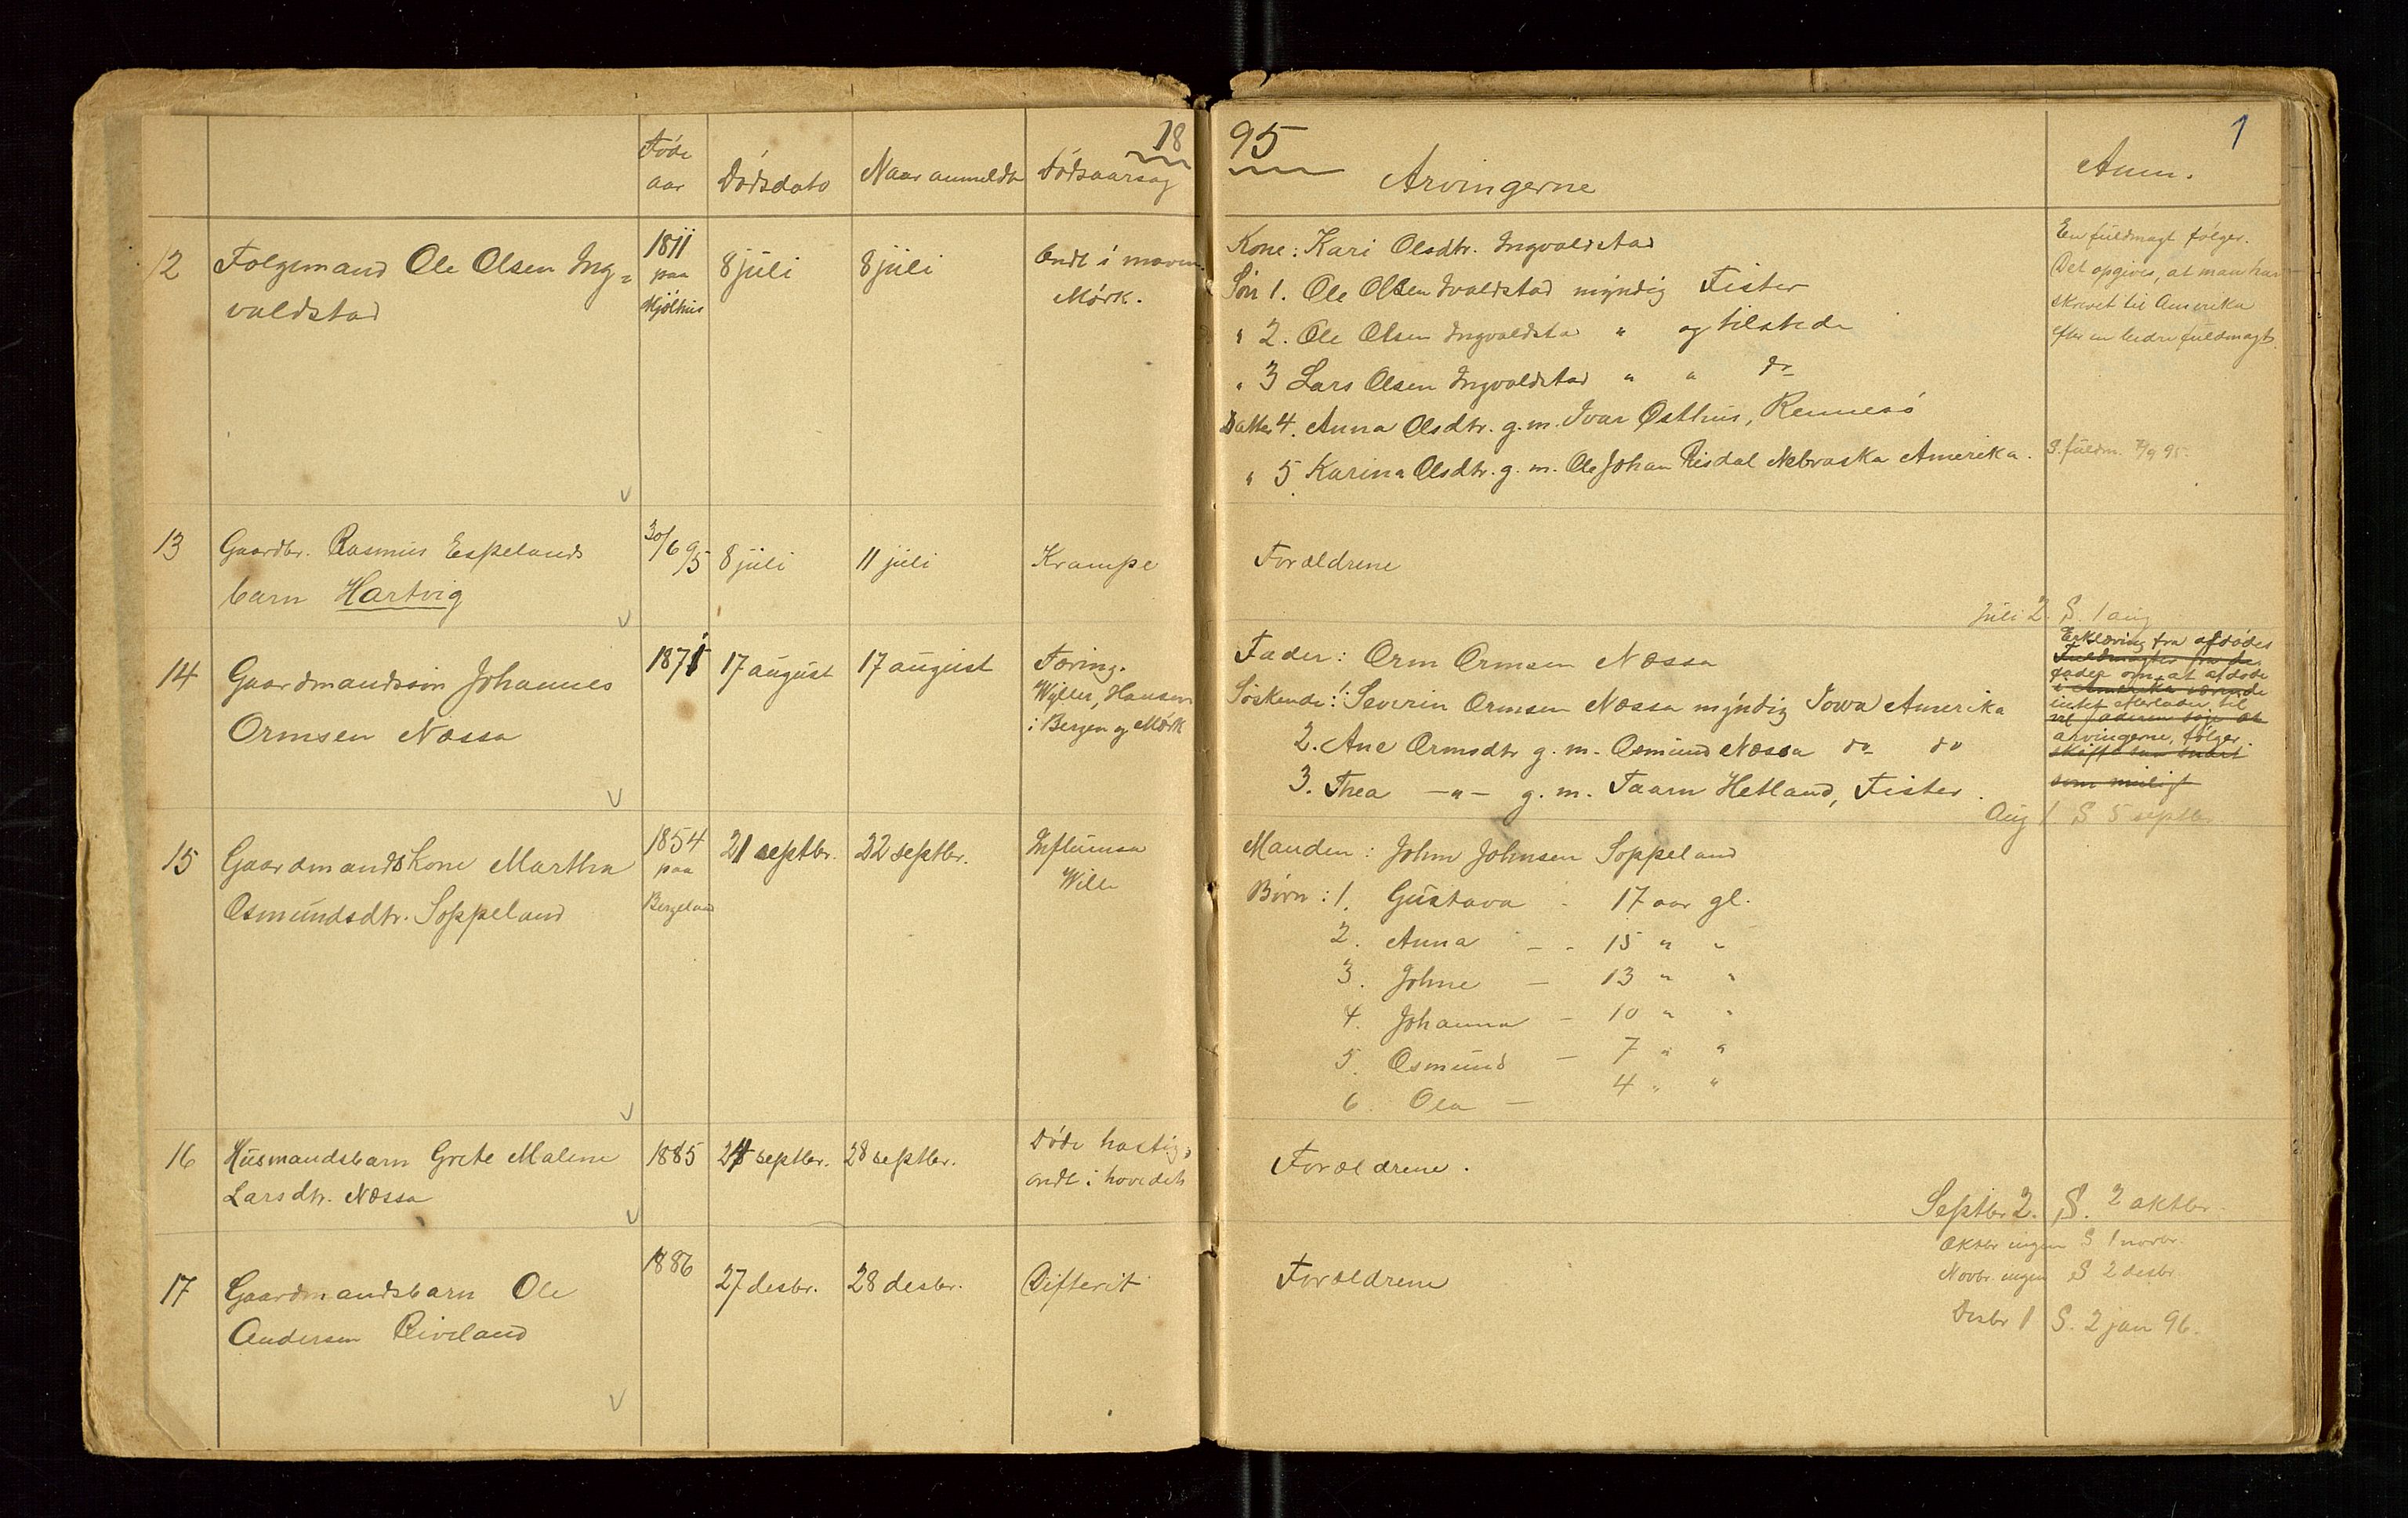 18 95
1
Føde
aar
Dødsdato
Naar anmeldt
Dødsaarsag
Arvingerne
Anm.
12
Folgemand Ole Olsen Ing=
valdstad
1811
paa
Hjölhus
8 juli
8 juli
Ondt i maven.
Mørk.
Kone: Kari Olsdtr. Ingvaldstad
Søn 1. Ole Olsen Ivaldstad myndig Fister
" 2. Ole Olsen Ingvaldsta " og tilstede
" 3 Lars Olsen Ingvaldstad " " do
Datter 4. Anna Olsdtr. g. m. Ivar Østhus, Rennesø
" 5. Karina Olsdtr. g. m. Ole Johan Risdal Nebraska Amerika.
En fuldmagt følger.
Det opgives, at man har
skrevet til Amerika
efter en bedre fuldmagt.
S. fuldm. 95
13
Gaardbr. Rasmus Espelands
barn Hartvig
30/6 95
8 juli
11 juli
Krampe
Forældrene
Juli 2. S. 1 aug
14
Gaardmandssøn Johannes
Ormsen Næssa
1871
17 august
17 august
Tæring.
Wyller, Hansen
i Bergen og Mørk
Fader: Orm Ormsen Næssa
Søskende: 1. Severin Ormsen Næssa myndig Iowa Amerika
2. Ane Ormsdtr g. m. Osmund Næssa do do
3. Thea —"— g. m. Taarn Hetland, Fister.
Erklæring fra afdødes
Fuldmagter fra de
fader om, at afdøde
i Amerika værende
intet efterlader til
vil faderen søge at
arvingerne, følger.
skifte saa snart
som muligt
Aug 1 S 5 septbr
15
Gaardmandskone Martha
Osmundsdtr. Soppeland
1854
paa
Bergeland
21 septbr.
22 septbr.
Influensa
Wille
Manden: John Johnsen Soppeland
Børn: 1. Gustava - 17 aar gl.
2. Anna - - 15 " "
3. Johne - 13 " "
4. Johanna - 10 " "
5. Osmund - 7 " "
6. Ola - 4 " "
16
Husmandsbarn Grete Malene
Larsdtr. Næssa
1885
24 septbr.
28 septbr.
Døde hastig,
ondt i hovedet
Forældrene.
Septbr 2. S. 2 oktbr.
Oktbr ingen S 1 novbr.
Novbr. ingen S 2 desbr
Desbr 1 S. 2 jan 96.
17
Gaardmandsbarn Ole
Andersen Riveland
1886
27 desbr.
28 desbr.
Difterit
Forældrene